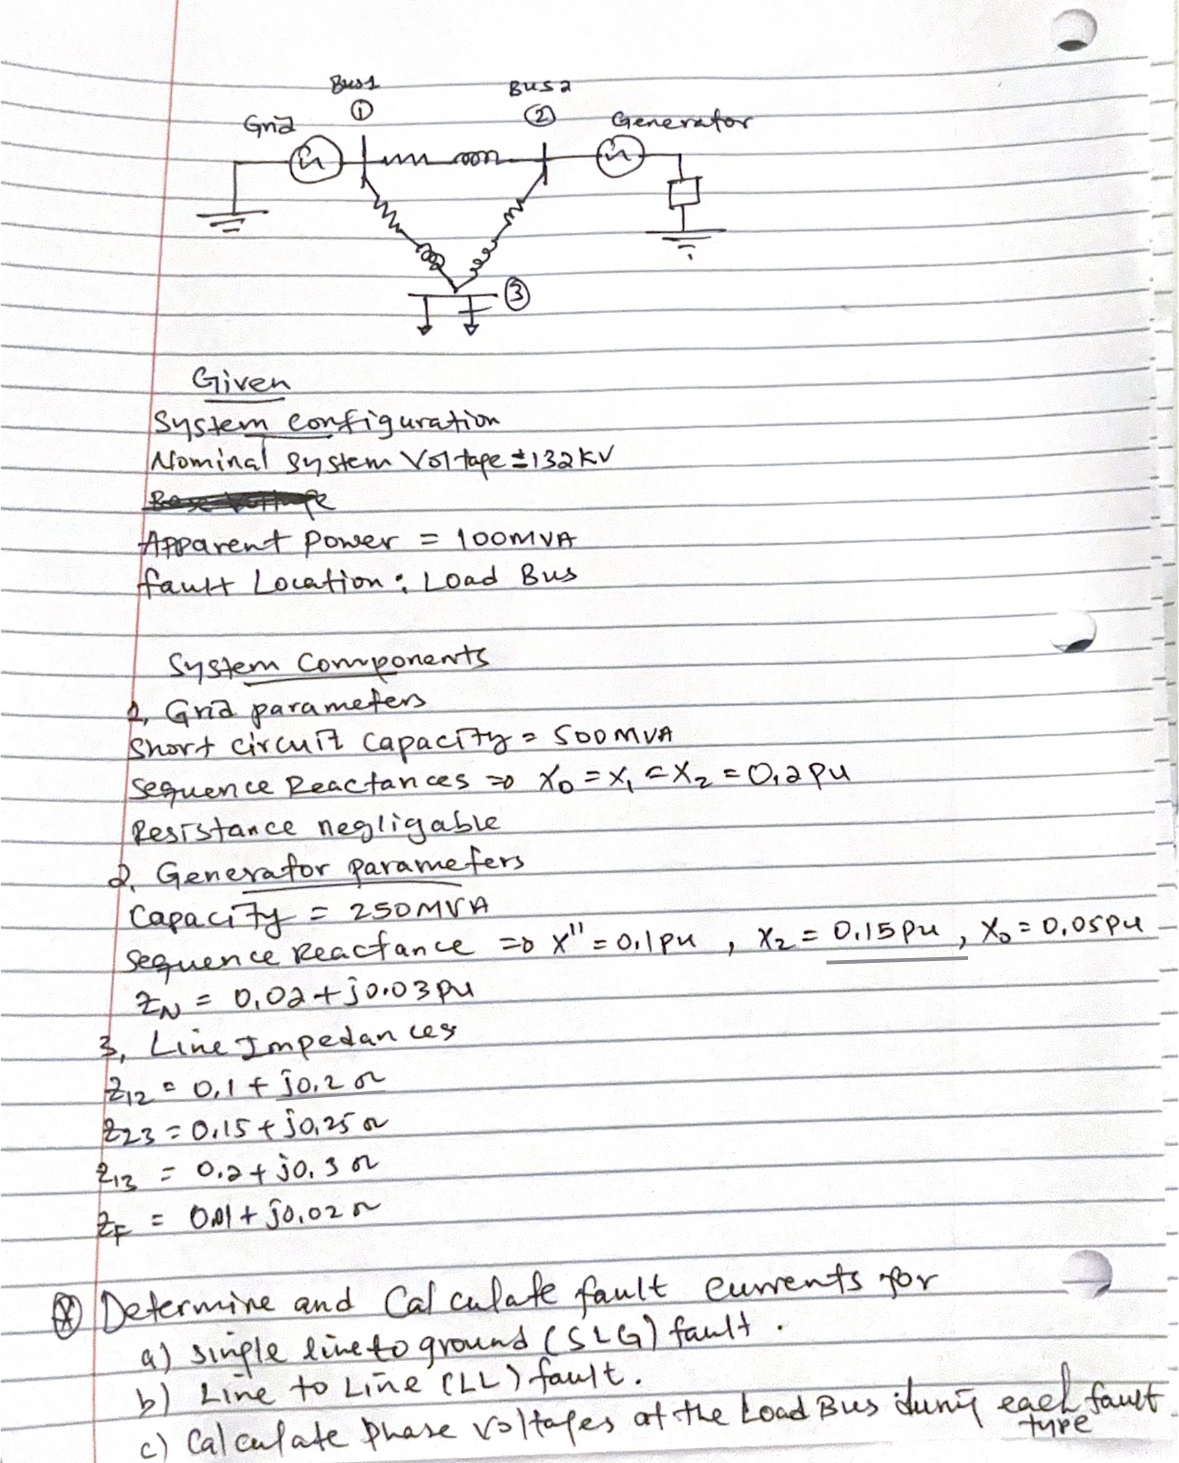 Bus1
Bus2
①
②
Grid
Generator
③
Given
System configuration
Nominal system Voltage = 132KV
Apparent power = 100MVA
fault Location : Load Bus
System Components
1, Grid parameters
Short circuit capacity = 500MVA
Sequence Reactances => X₀ = X₁ = X₂ = 0,2pu
Resistance negligable
2, Generator parameters
Capacity = 250MVA
Sequence Reactance => X" = 0,1pu , X₂ = 0,15pu , X₀ = 0,05pu
Z_N = 0,02 + j0.03pu
3, Line Impedances
Z₁₂ = 0,1 + j0,2 Ω
Z₂₃ = 0,15 + j0,25 Ω
Z₁₃ = 0,2 + j0,3 Ω
Z_F = 0,01 + j0,02 Ω
Determine and Calculate fault currents for
a) single line to ground (SLG) fault .
b) Line to Line (LL) fault .
c) Calculate phase voltages at the Load Bus during each fault
type